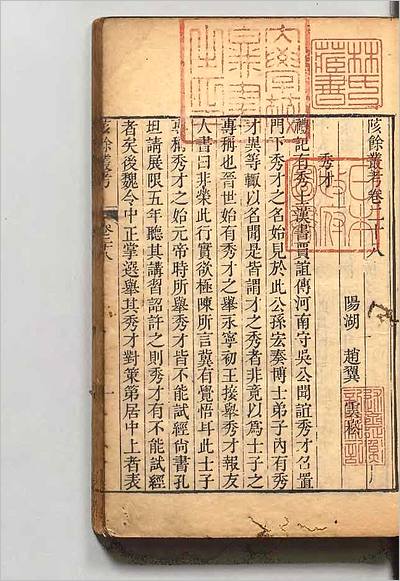 陔餘叢考卷二十八
陽湖 趙翼 雲崧
秀才
禮記有秀士漢書賈誼傳河南守吳公聞誼秀才召置
門下秀才之名始見於此公孫宏奏博士弟子內有秀
才異等輒以名聞是皆謂才之秀者非竟以爲士之
專稱也晉世始有秀才之舉永寧初王接舉秀才報友
人書曰非榮此行實欲極陳所言冀有覺悟耳此士子
專稱秀才之始元帝時所舉秀才皆不能試經尚書孔
坦請展限五年聽其講習詔許之則秀才有不能試經
者矣後魏令中正掌選舉其秀才對策第居中上者表
陔餘叢考
卷二十八
一
林氏
藏書
日本
政府
圖書